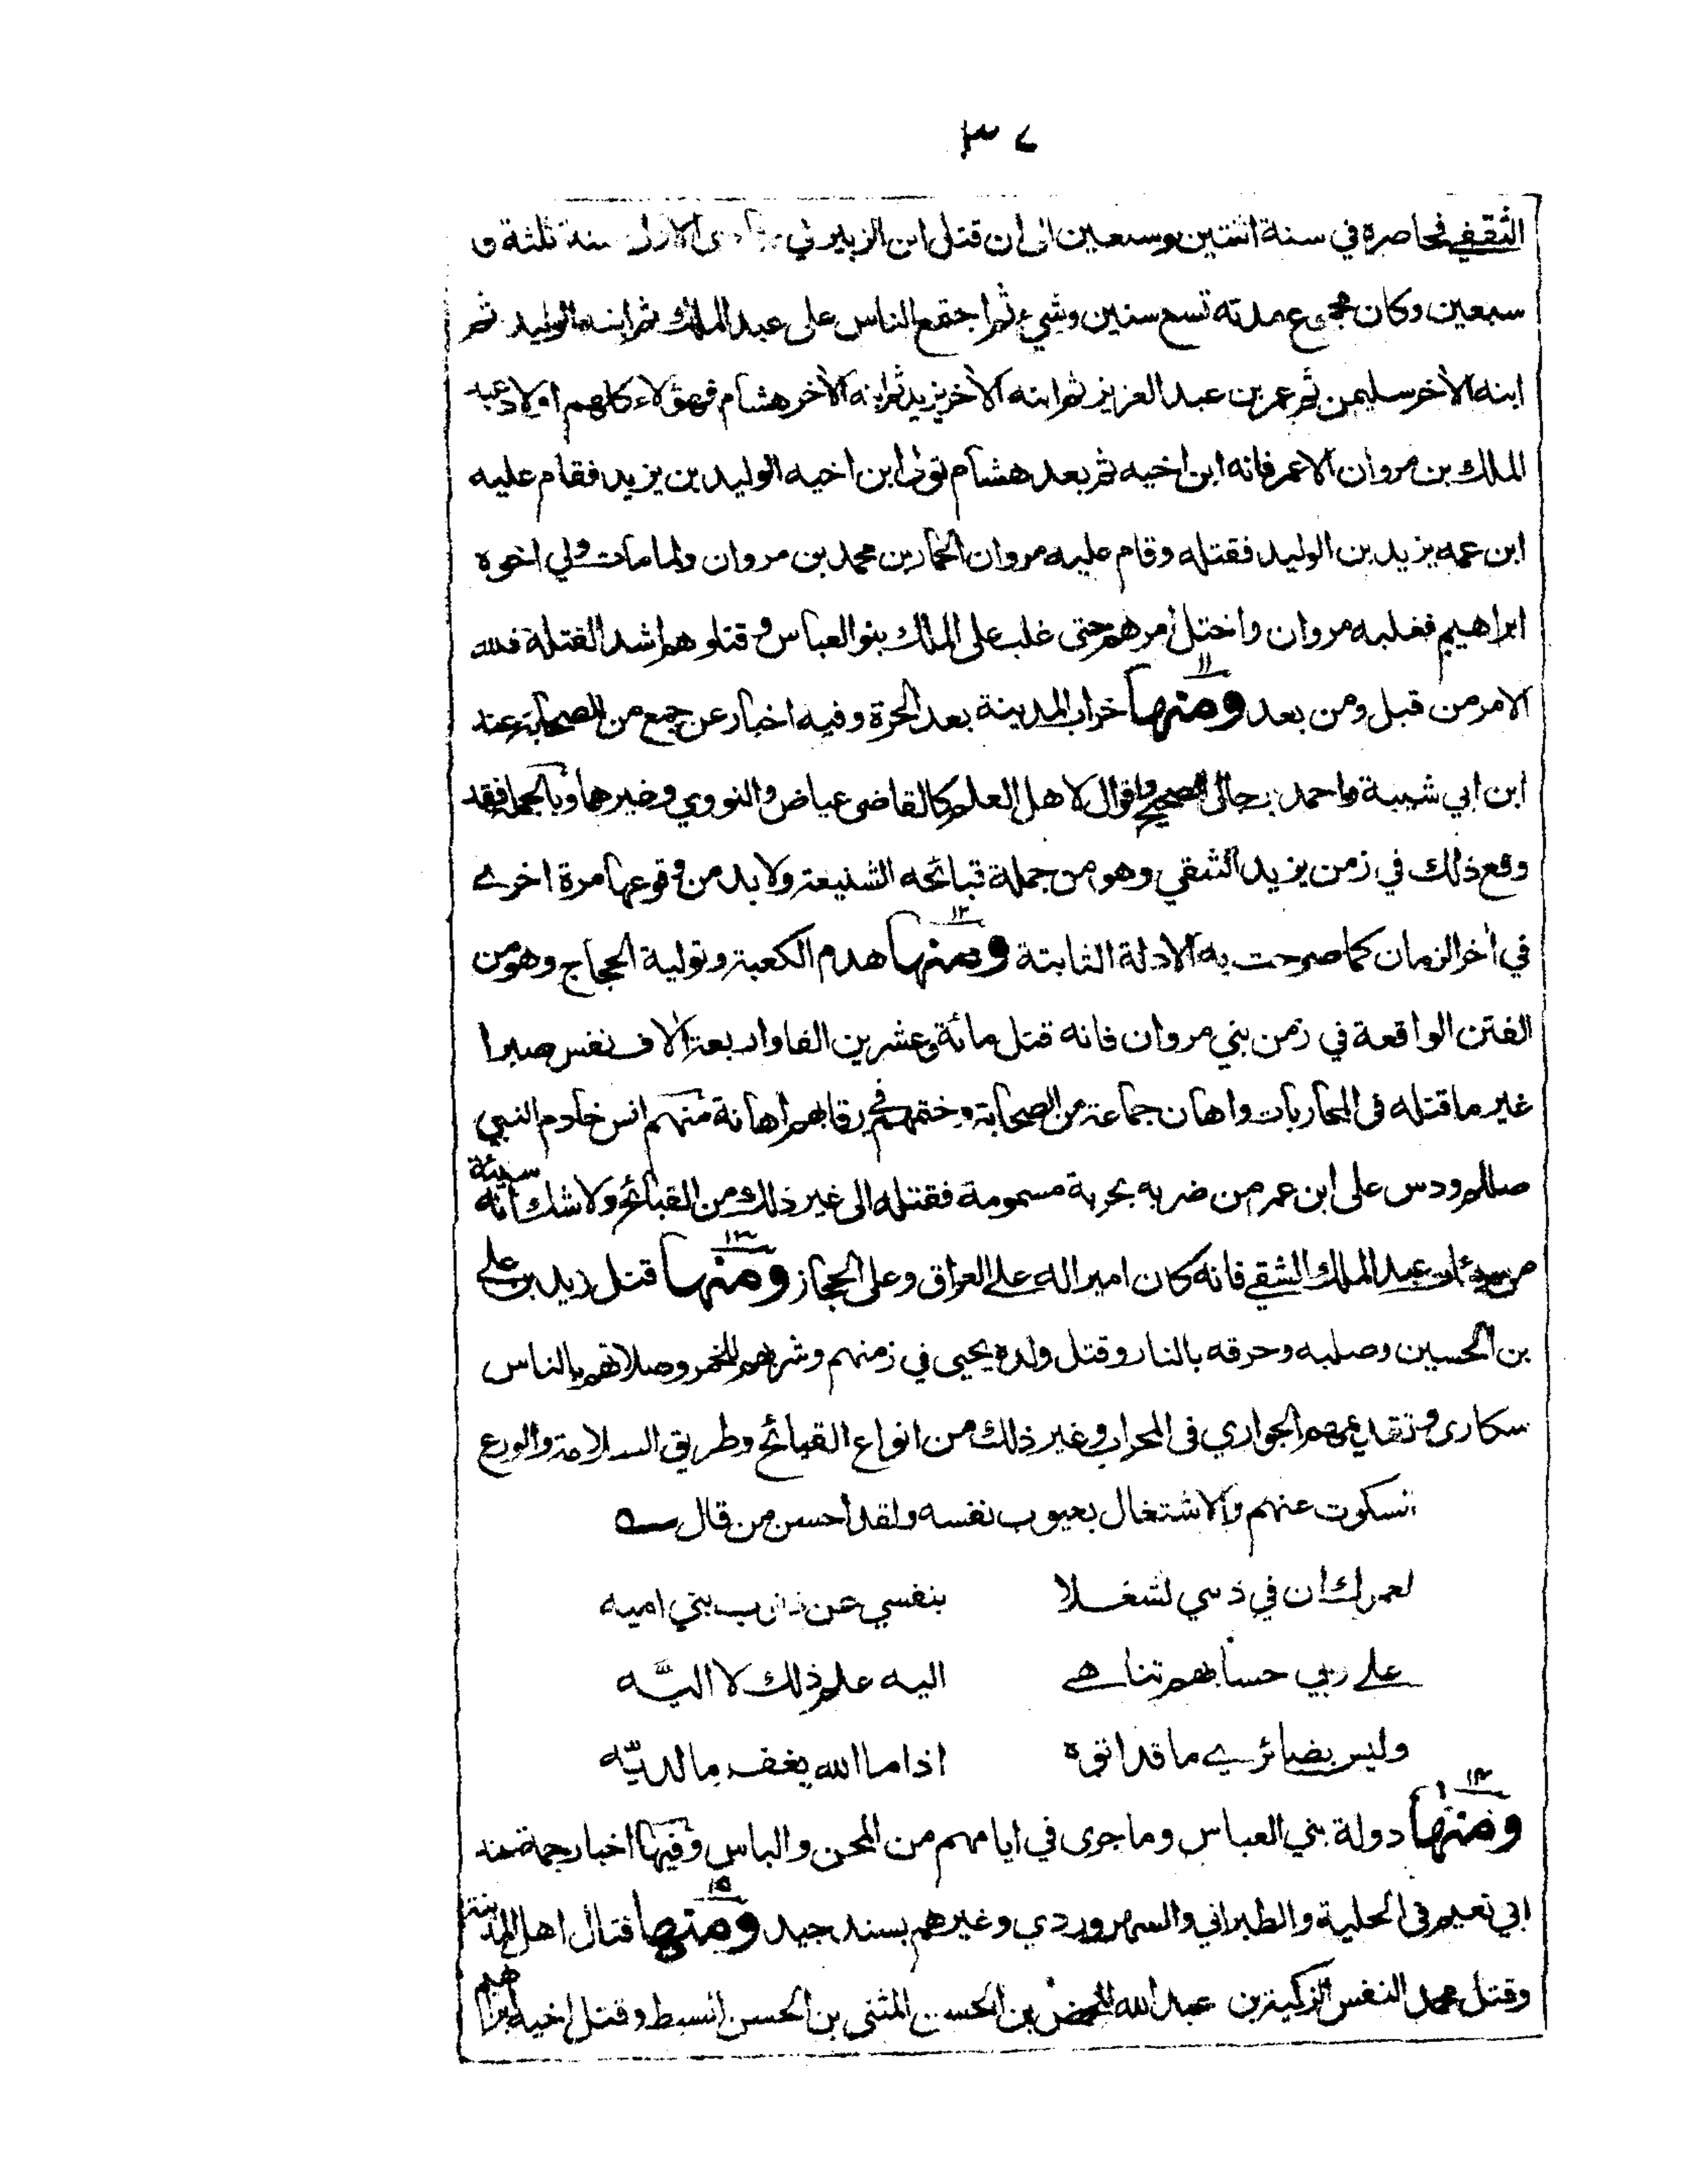 ٣٤
الثقفي فحاصره في سنة اثنتين وسبعين الى ان قتل ابن الزبير في جمادى الاولى سنة ثلثة و
سبعين وكان مجموع مدته تسع سنين وشيء ثم اجتمع الناس على عبد الملك ثم ابنه الوليد ثم
ابنه الآخر سليمن ثم عمر بن عبد العزيز ثم ابنه الآخر يزيد ثم ابنه الآخر هشام فهؤلاء كلهم اولاد عبد
الملك بن مروان الا عمر فانه ابن اخيه ثم بعد هشام تولى ابن اخيه الوليد بن يزيد فقام عليه
ابن عمه يزيد بن الوليد فقتله وقام عليه مروان الحمار بن محمد بن مروان ولما مات ولي اخوه
ابراهيم فغلبه مروان واختل أمرهم حتى غلب على الملك بنو العباس وقتلوهم اشد القتلة فلله
الامر من قبل ومن بعد ومنها ١١ خراب المدينة بعد الحرة وفيه اخبار عن جمع من الصحابة عند
ابن ابي شيبة واحمد برجال الصحيح واقوال لاهل العلم كالقاضي عياض والنووي وغيرهما وبالجملة فقد
وقع ذلك في زمن يزيد الشقي وهو من جملة قبائحه الشنيعة ولا بد من وقوعها مرة اخرى
في أخر الزمان كما صرحت به الادلة الثابتة ومنها ١٢ هدم الكعبة وتولية الحجاج وهو من
الفتن الواقعة في زمن بني مروان فانه قتل مائة وعشرين الفا واربعة آلاف نفس صبرا
غير ما قتله في المحاربات واهان جماعة من الصحابة وختمهم في رقابهم اهانة منهم انس خادم النبي
صللم ودس على ابن عمر من ضربه بحربة مسمومة فقتله الى غير ذلك من القبائح ولا شك أنه سيئة
من سيئات عبد الملك الشقي فانه كان اميرا له على العراق وعلى الحجاز ومنها ١٣ قتل زيد بن علي
بن الحسين وصلبه وحرقه بالنار وقتل ولده يحيى في زمنهم وشربهم للخمر وصلاتهم بالناس
سكارى وتقديمهم الجواري في المحراب وغير ذلك من انواع القبائح وطريق السلامة والورع
السكوت عنهم والاشتغال بعيوب نفسه ولقد احسن من قال ـه
لعمرك ان في ذنبي لشغلا بنفسي عن ذنوب بني اميه
على ربي حسابهم تناهى اليه علم ذلك لا اليّه
وليس بضائري ما قد اتوه اذا ما الله يغفر ما لديّه
ومنها ١٤ دولة بني العباس وما جرى في ايامهم من المحن والباس وفيها اخبار جمة عند
ابي نعيم في الحلية والطبراني والسهروردي وغيرهم بسند جيد ومنها ١٥ قتال اهل المدينة
وقتل محمد النفس الزكية بن عبد الله المحض بن الحسن المثنى بن الحسن السبط وقتل اخيه ابراهيم